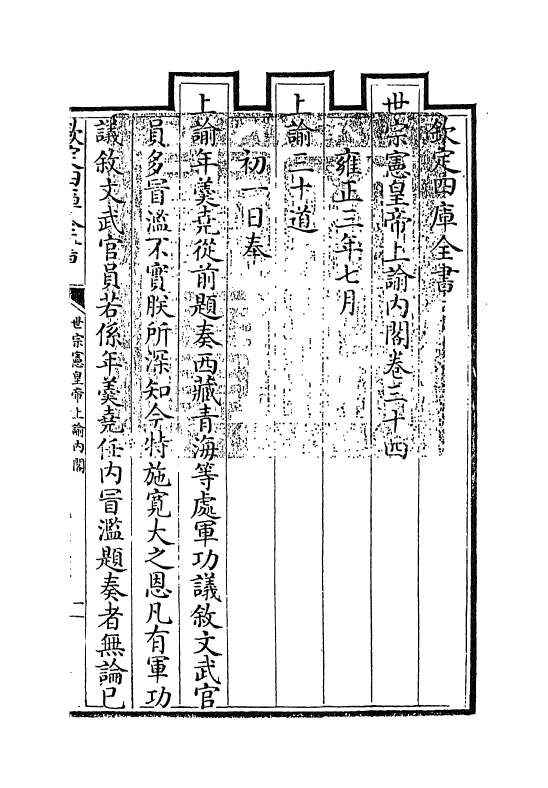 欽定四庫全書
世宗憲皇帝上諭內閣卷三十四
雍正三年七月
上諭三十道
初一日奉
上諭年羹堯從前題奏西藏青海等處軍功議敘文武官
員多冒濫不實朕所深知今特施寛大之恩凡有軍功
議敘文武官員若係年羹堯任內冒濫題奏者無論已
欽定四庫全書
世宗憲皇帝上諭內閣